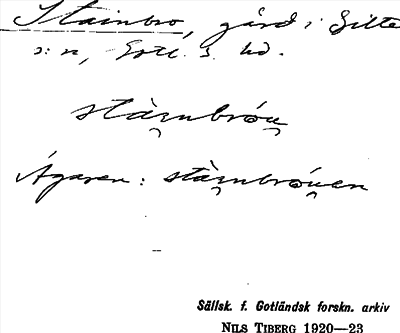 Stainbro, gård i Silte
s:n, Gotl. S. hd.
stàrnbróu̯
Ägaren: stàrnbróu̯en
Sällsk. f. Gotländsk forskn. arkiv
NILS TIBERG 1920—23